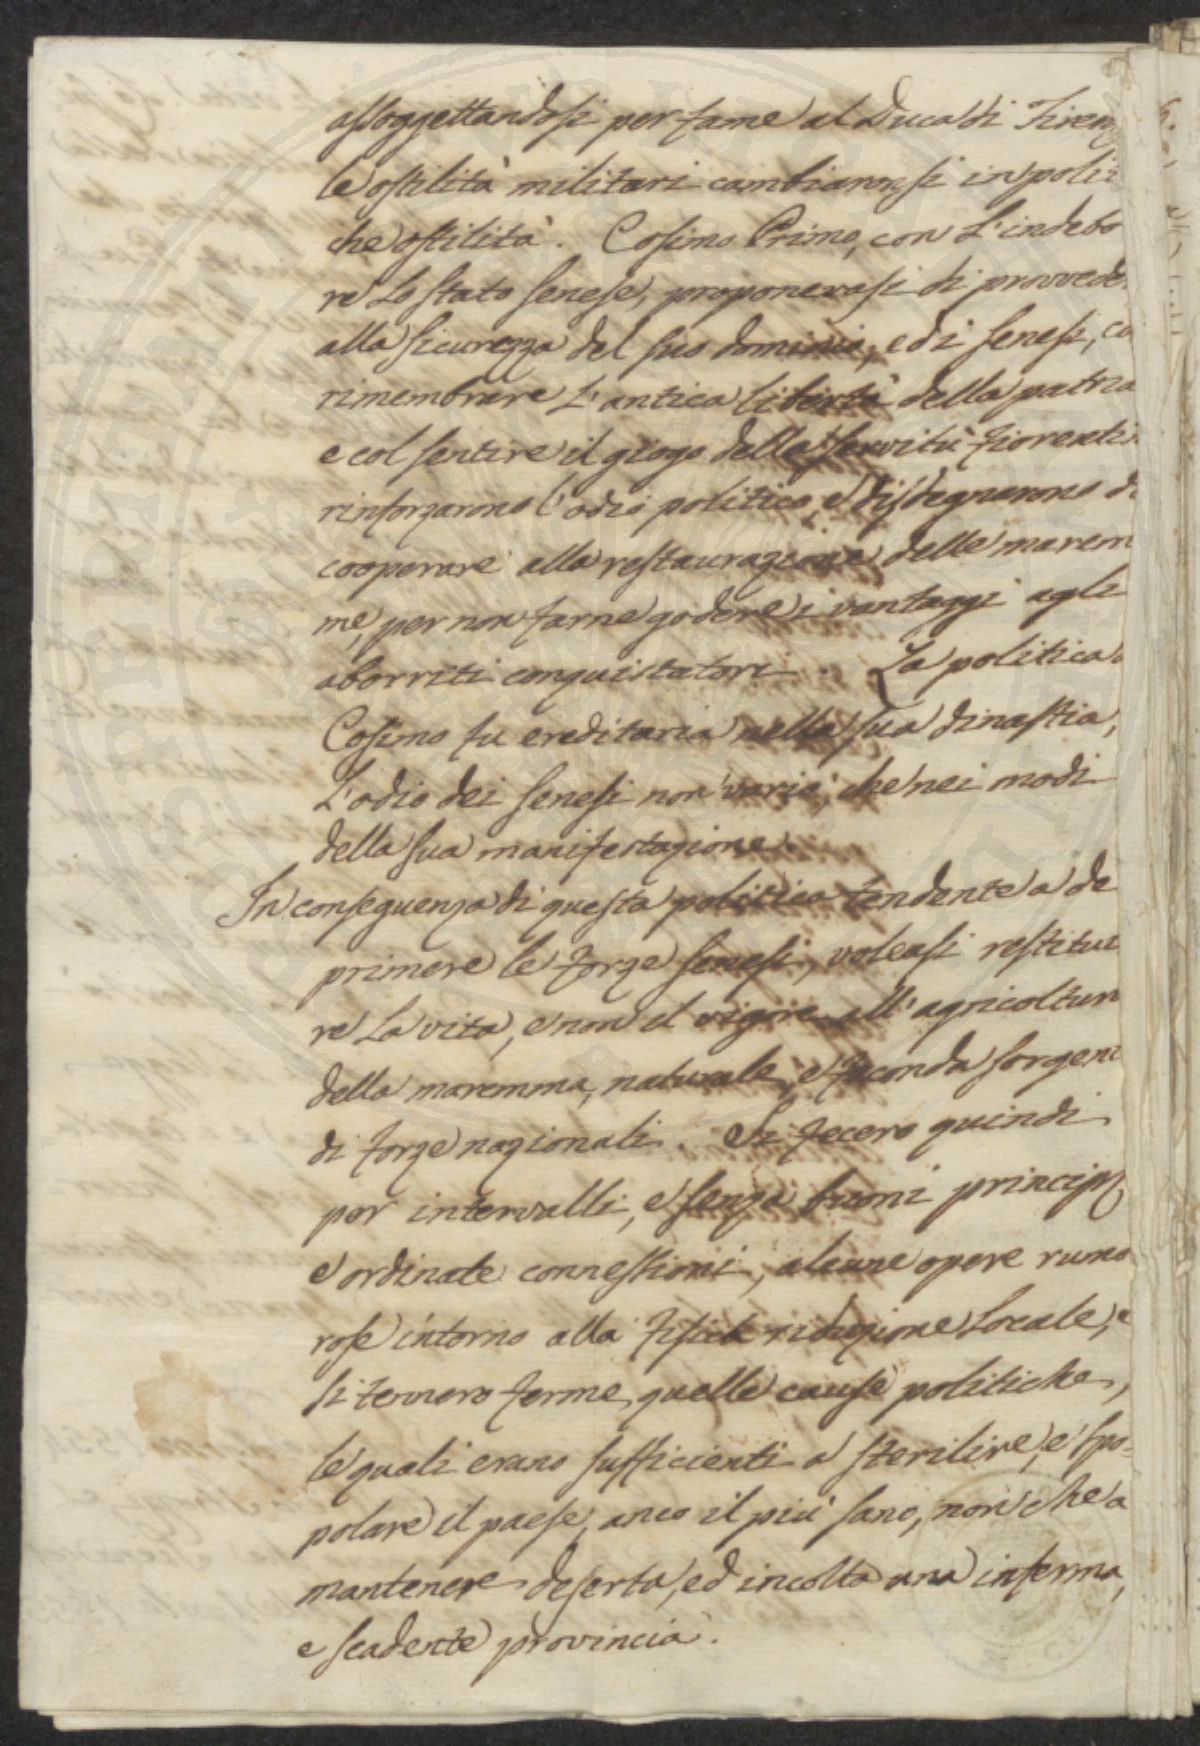 assoggettandosi per fame al Duca di Firen
le ostilità militari cambiaronsi in poliz
che ostilità. Cosimo Primo, con l'indebo
re lo stato senese, proponevasi di provvede
alla sicurezza del suo dominio, ed i senesi, co
rimembrare l'antica libertà della patria
e col sentire il giogo della servitù fiorenti
rinforzarono l'odio politico, e disdegnarono di
cooperare alla restaurazione delle marem
me, per non farne godere i vantaggi agli
aborriti conquistatori. La politica
Cosimo fu ereditaria nella sua dinastia,
l'odio dei senesi non variò, che nei modi
della sua manifestazione.
In conseguenza di questa politica tendente a de
primere le forze senesi, voleasi restitui
re la vita, e non il vigore all'agricoltura
della maremma, naturale, e feconda sorgent
di forze nazionali. Si fecero quindi
per intervalli, e senza buoni principj
e ordinate connessioni, alcune opere rumo
rose intorno alla fisica riduzione locale, e
si tennero ferme quelle cause politiche,
le quali erano sufficienti a sterilire, e spo=
polare il paese, anco il più sano, non che a
mantenere deserta, ed incolta una inferma,
e scadente provincia.